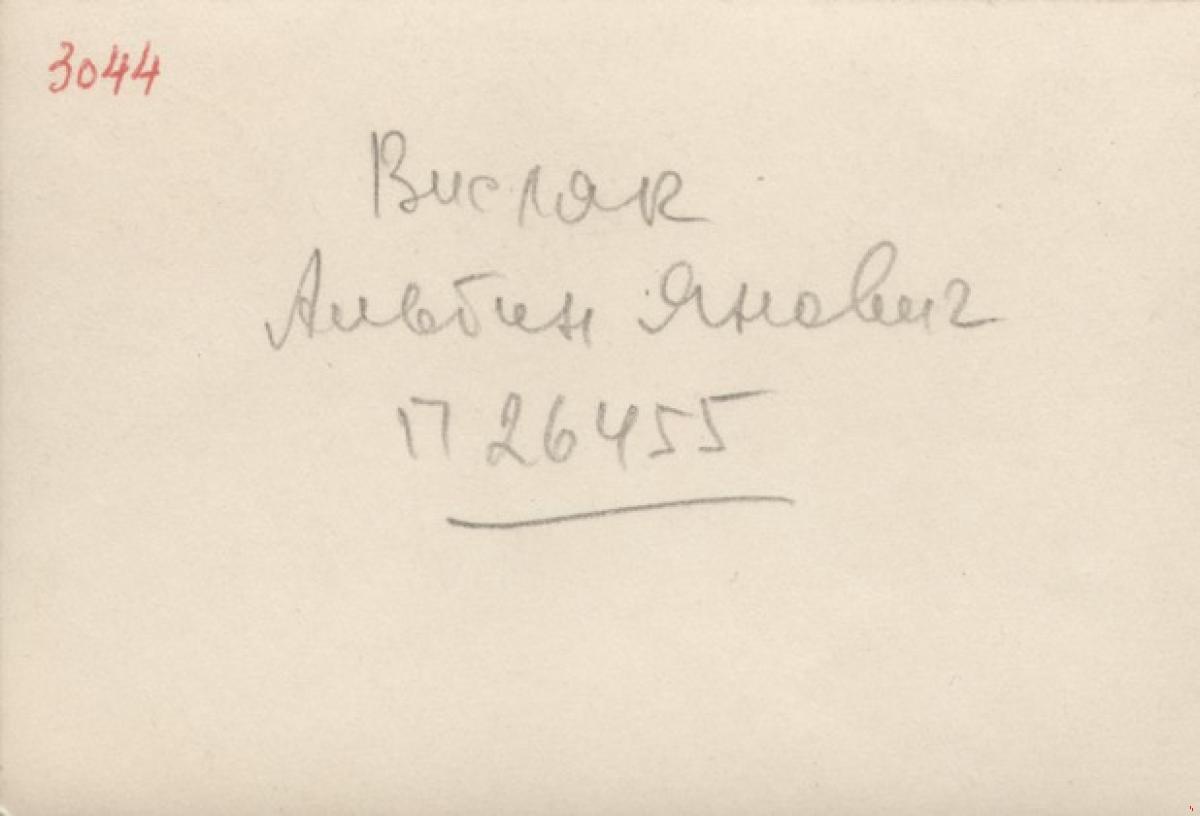 3044
Висляк
Альбин Янович
П 26455